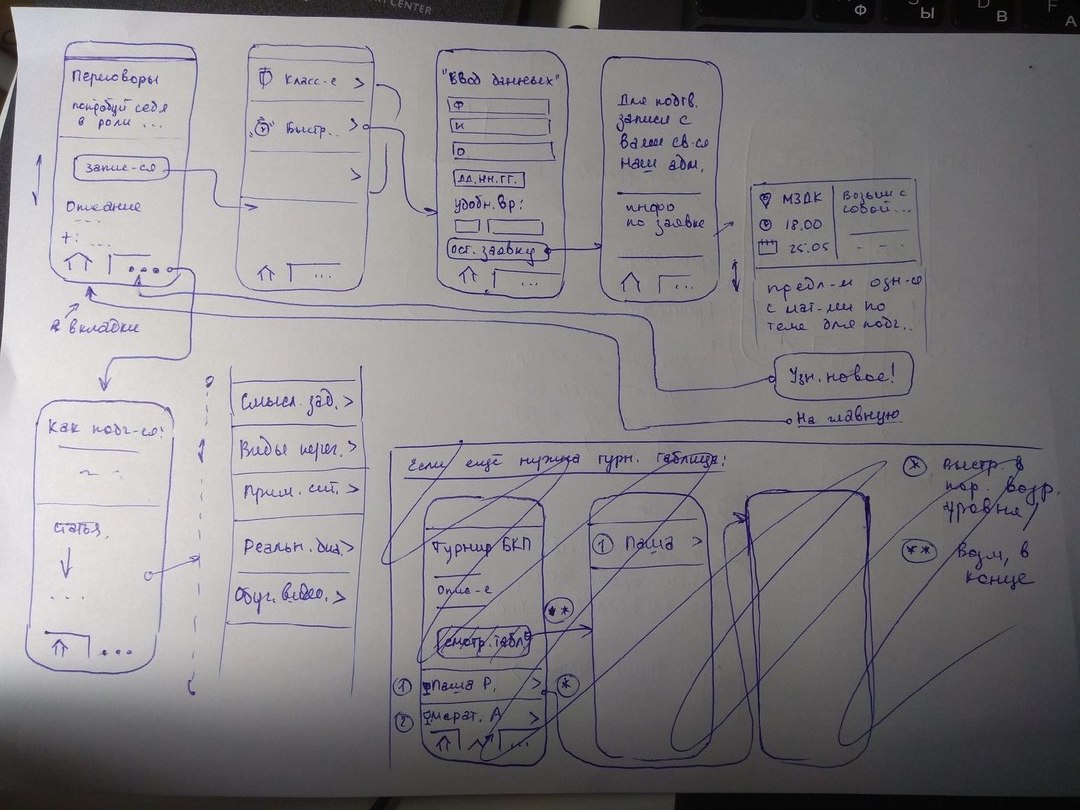 CENTER
Ф
Ы
В
А
F
Переговоры
попробуй себя
в роли ...
запис-ся
Описание
+: ...
...
2 вкладки
Класс-е >
Быстр.. >
>
...
"Ввод данных"
Ф
И
О
удобн. вр:
ост. заявку
...
Для подтв.
записи с
вами св-ся
наш адм.
инфо
по заявке
...
МЗДК
18.00
25.05
Возьми с
собой...
предл-м озн-ся
с мат-ми по
теме для подг..
Узн. новое!
На главную
Как подг-ся?
статья
...
...
Смысл. зад. >
Виды перег. >
Прим. сит. >
Реальн. >
Обуч. видео. >
Если ещё нужна турн. таблица:
Турнир БКП
Описа-е
смотр. табл
1 Паша Р. >
2 Марат. А >
...
**
*
1 Паша >
* выстр. в
пор. возр.
уровня
** Возм, в
конце